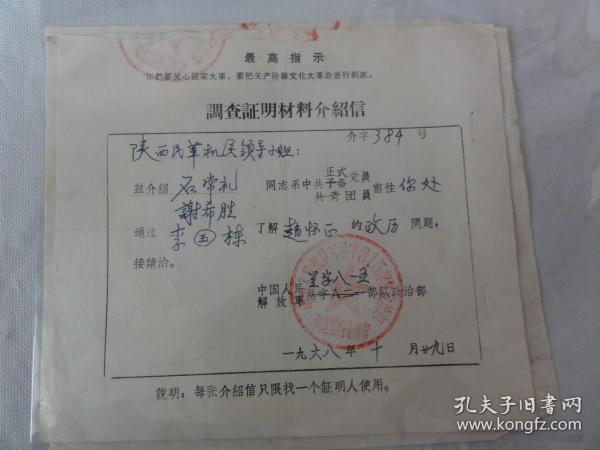 最高指示
你們要关心國家大事，要把无产阶级文化大革命进行到底。
調查証明材料介紹信
介字384号
陕西民革机关领导小组：
兹介紹 石常礼 謝希胜 同志系中共正式予备党員 共青团員 前往你处
通过 李国栋 了解 赵怀正 的 政历 問題，
接請洽。
中国人民解放軍 兰字八一五 部队政治部
一九六八年十月廿九日
說明：每张介紹信只限找一个証明人使用。
孔夫子旧書网
www.kongfz.com